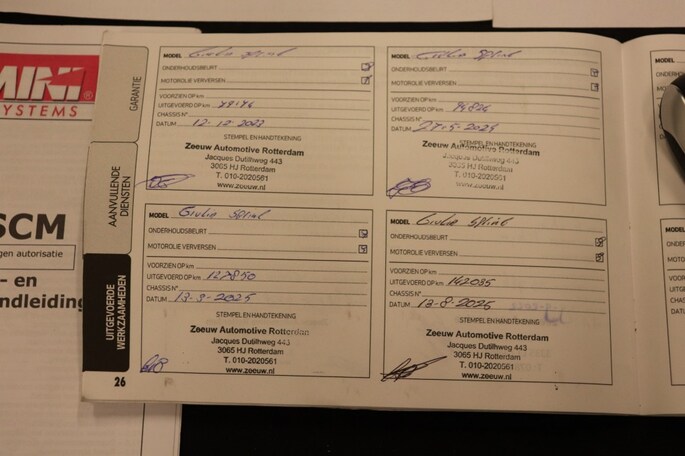 MINI
SYSTEMS
SCM
gen autorisatie
- en
ndleiding
GARANTIE
AANVULLENDE
DIENSTEN
UITGEVOERDE
WERKZAAMHEDEN
26
MODEL
ONDERHOUDSBEURT
MOTOROLIE VERVERSEN
VOORZIEN OP km
UITGEVOERD OP km
CHASSIS N°
DATUM 12-12-2022
STEMPEL EN HANDTEKENING
Zeeuw Automotive Rotterdam
Jacques Dutilhweg 443
3065 HJ Rotterdam
T. 010-2020561
www.zeeuw.nl
MODEL
ONDERHOUDSBEURT
MOTOROLIE VERVERSEN
VOORZIEN OP km
UITGEVOERD OP km
CHASSIS N°
DATUM
STEMPEL EN HANDTEKENING
Zeeuw Automotive Rotterdam
Jacques Dutilhweg 443
3065 HJ Rotterdam
T. 010-2020561
www.zeeuw.nl
MODEL Giulia Sprint
ONDERHOUDSBEURT
MOTOROLIE VERVERSEN
VOORZIEN OP km
UITGEVOERD OP km 127850
CHASSIS N°
DATUM
STEMPEL EN HANDTEKENING
Zeeuw Automotive Rotterdam
Jacques Dutilhweg 443
3065 HJ Rotterdam
T. 010-2020561
www.zeeuw.nl
MODEL Giulia Sprint
ONDERHOUDSBEURT
MOTOROLIE VERVERSEN
VOORZIEN OP km
UITGEVOERD OP km 142035
CHASSIS N°
DATUM 13-8-2025
STEMPEL EN HANDTEKENING
Zeeuw Automotive Rotterdam
Jacques Dutilhweg 443
3065 HJ Rotterdam
T. 010-2020561
www.zeeuw.nl